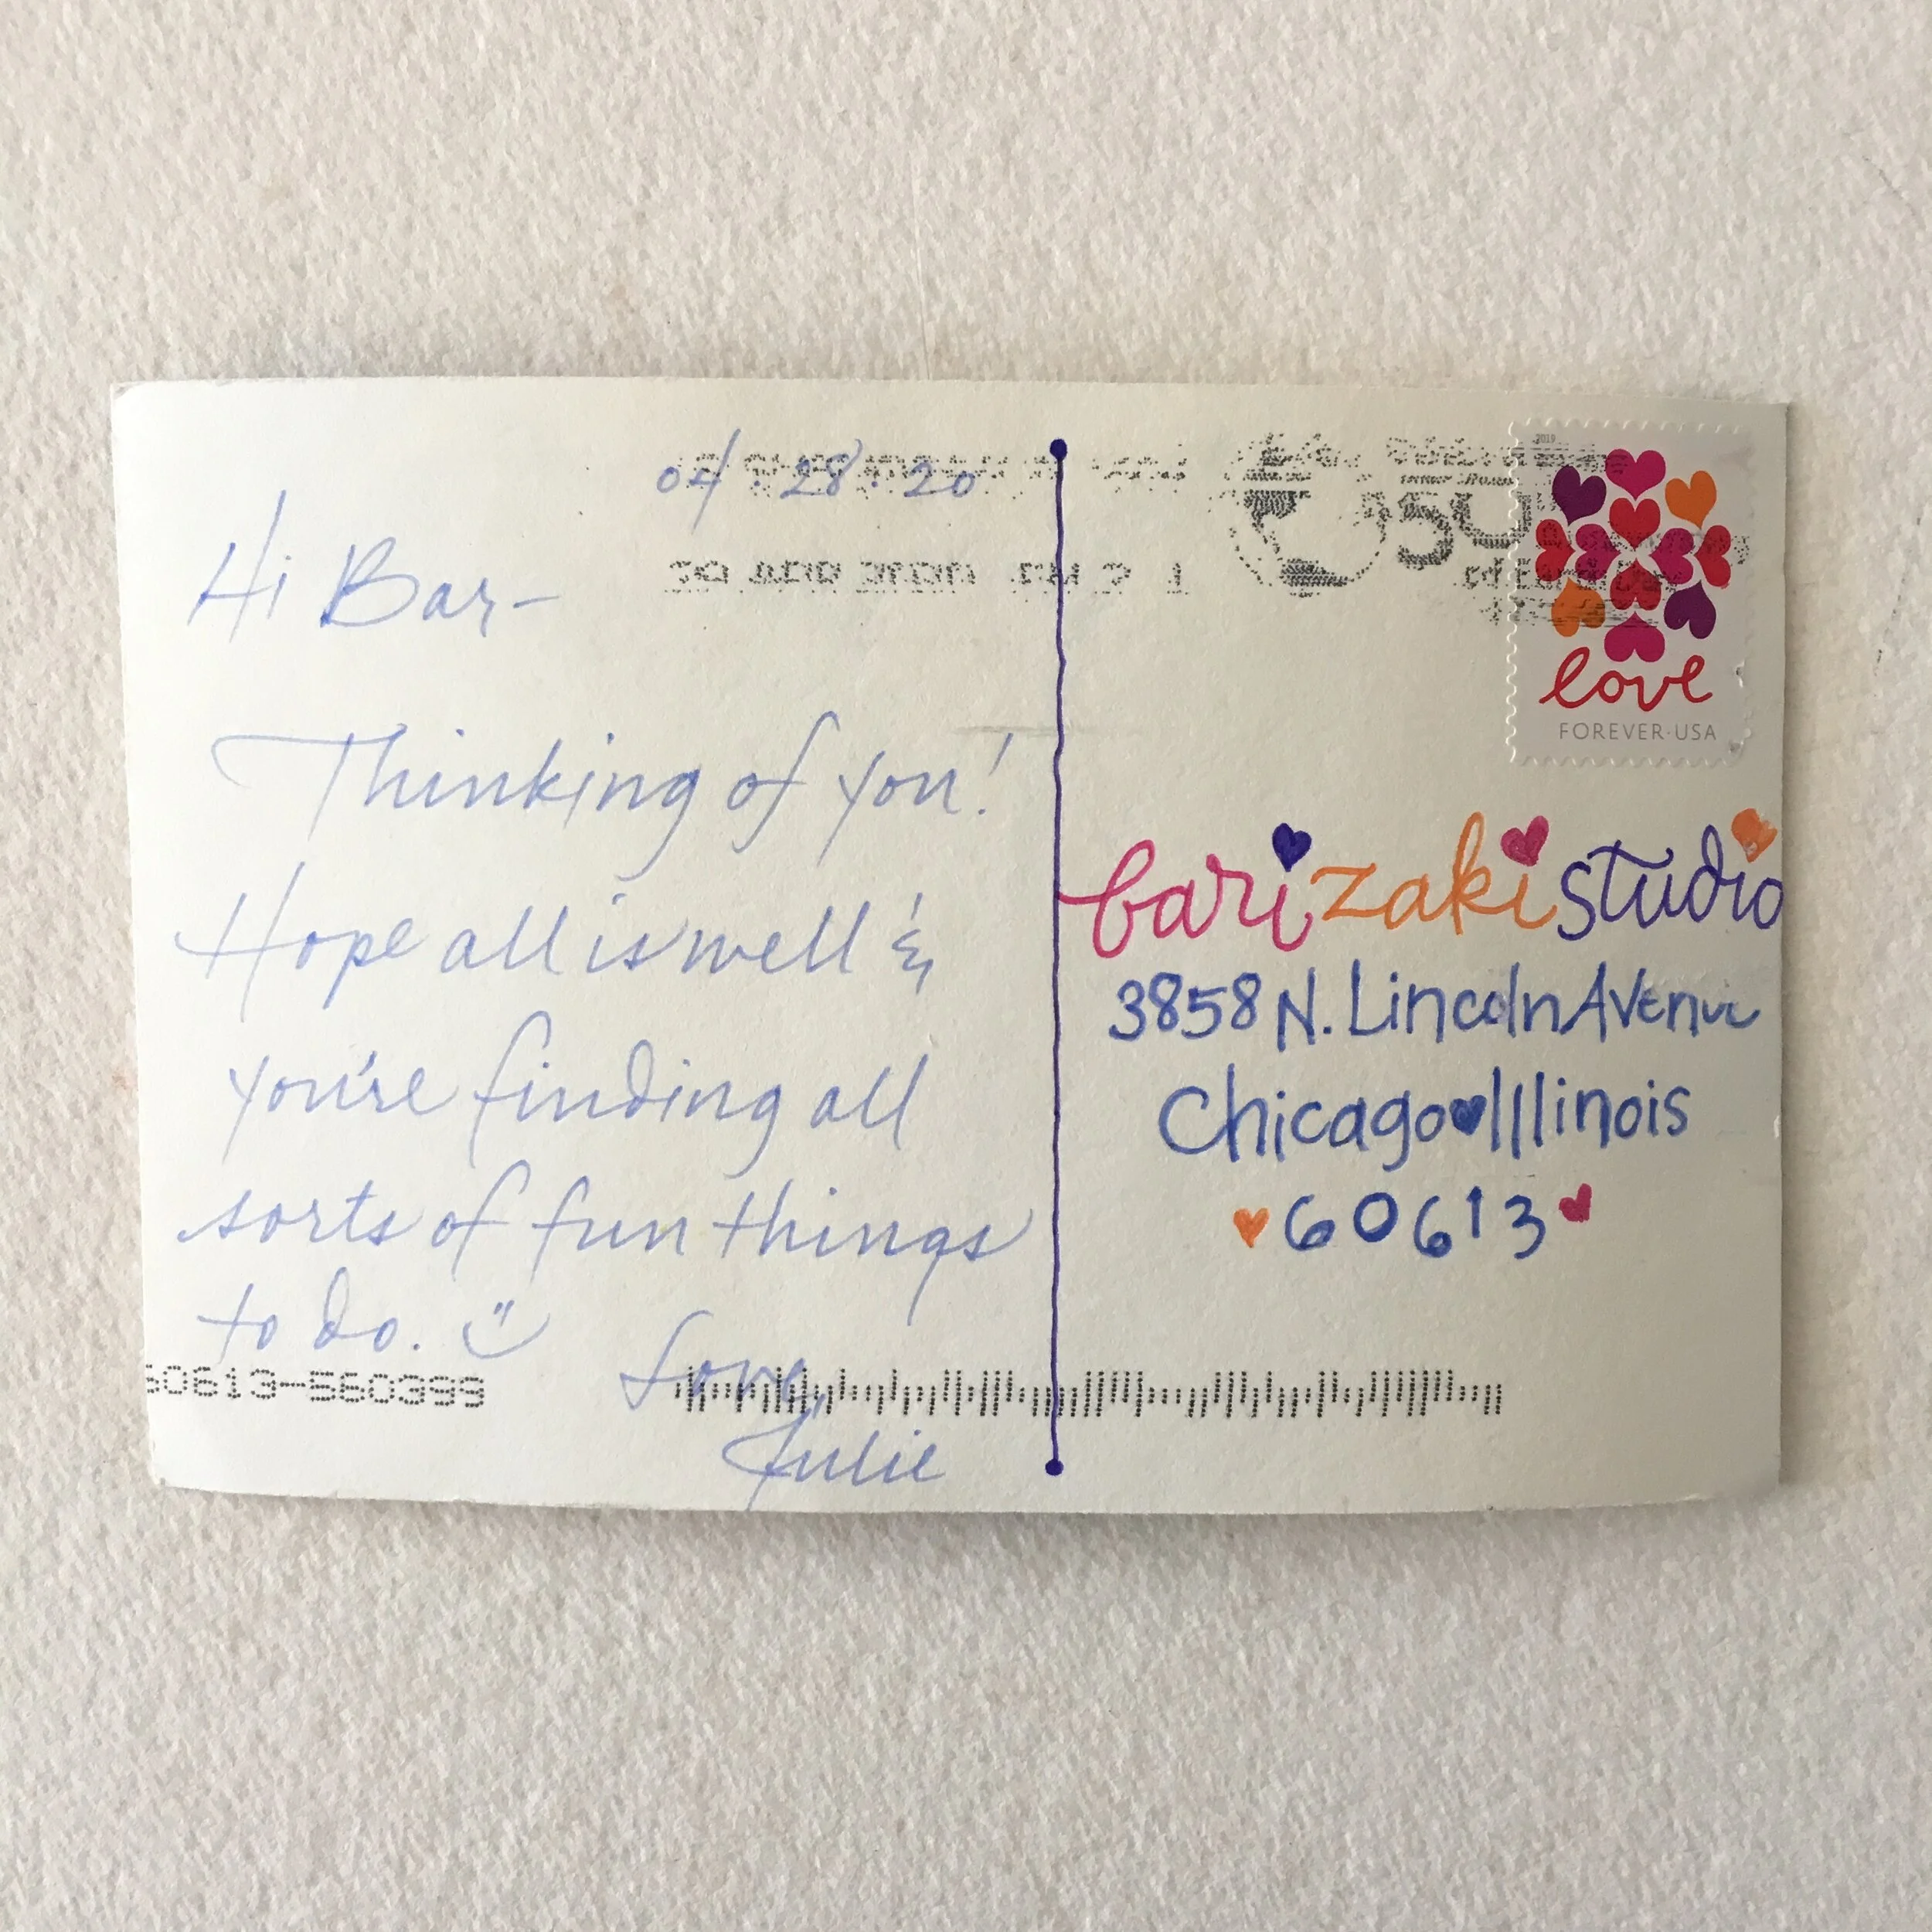 04 · 28 · 20
Hi Bar-
Thinking of you!
Hope all is well &
you're finding all
sorts of fun things
to do.
Love,
Julie
60613-560399
50
of Earth Day
2019
love
FOREVER·USA
bari zaki studio
3858 N. Lincoln Avenue
Chicago Illinois
60613